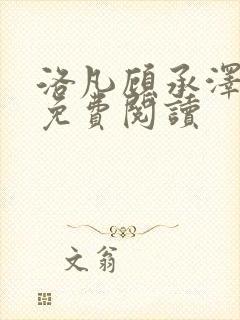 洛凡顧承澤
免費閱讀
文翁